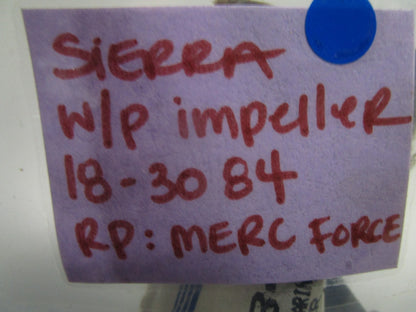 SiERRA
W/p impelleR
18-3084
RP: MERC FORCE